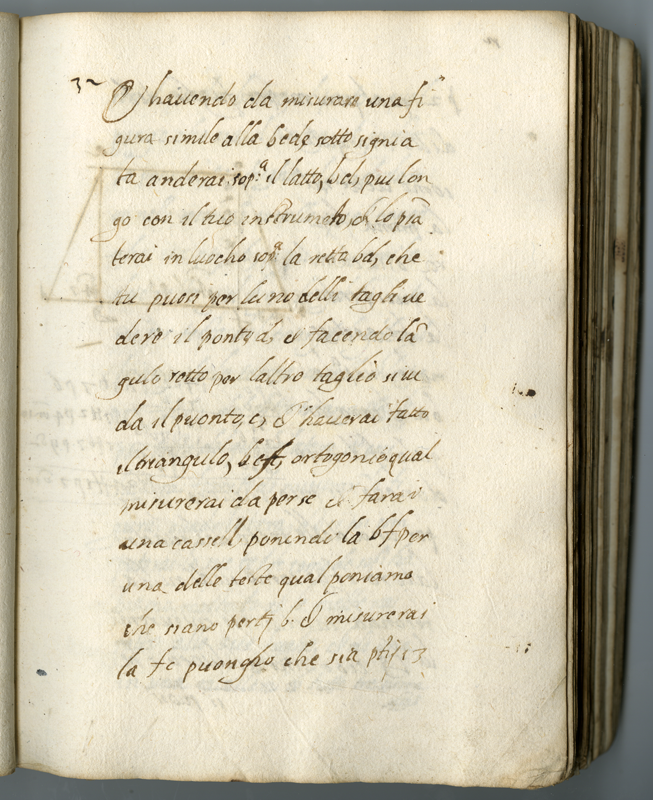 32
Et hauendo da misurare una fi
gura simile alla bcde sotto signia
ta anderai sop.a il latto, bd, piu lon
go con il tuo instrumeto, et lo pia
terai in luocho sop.a la retta bd, che
tu puosi per lu no delli tagli ue
dere il ponto d, et facendo la
gulo retto per laltro taglio si ue
da il puonto, c, et hauerai fatto
il triangulo, bcf, ortogonio qual
misurerai da per se et farai
una cassell ponendo la bf per
una delle teste qual poniamo
che siano pertj 6. et misurerai
la fc puongho che sia ptij 13